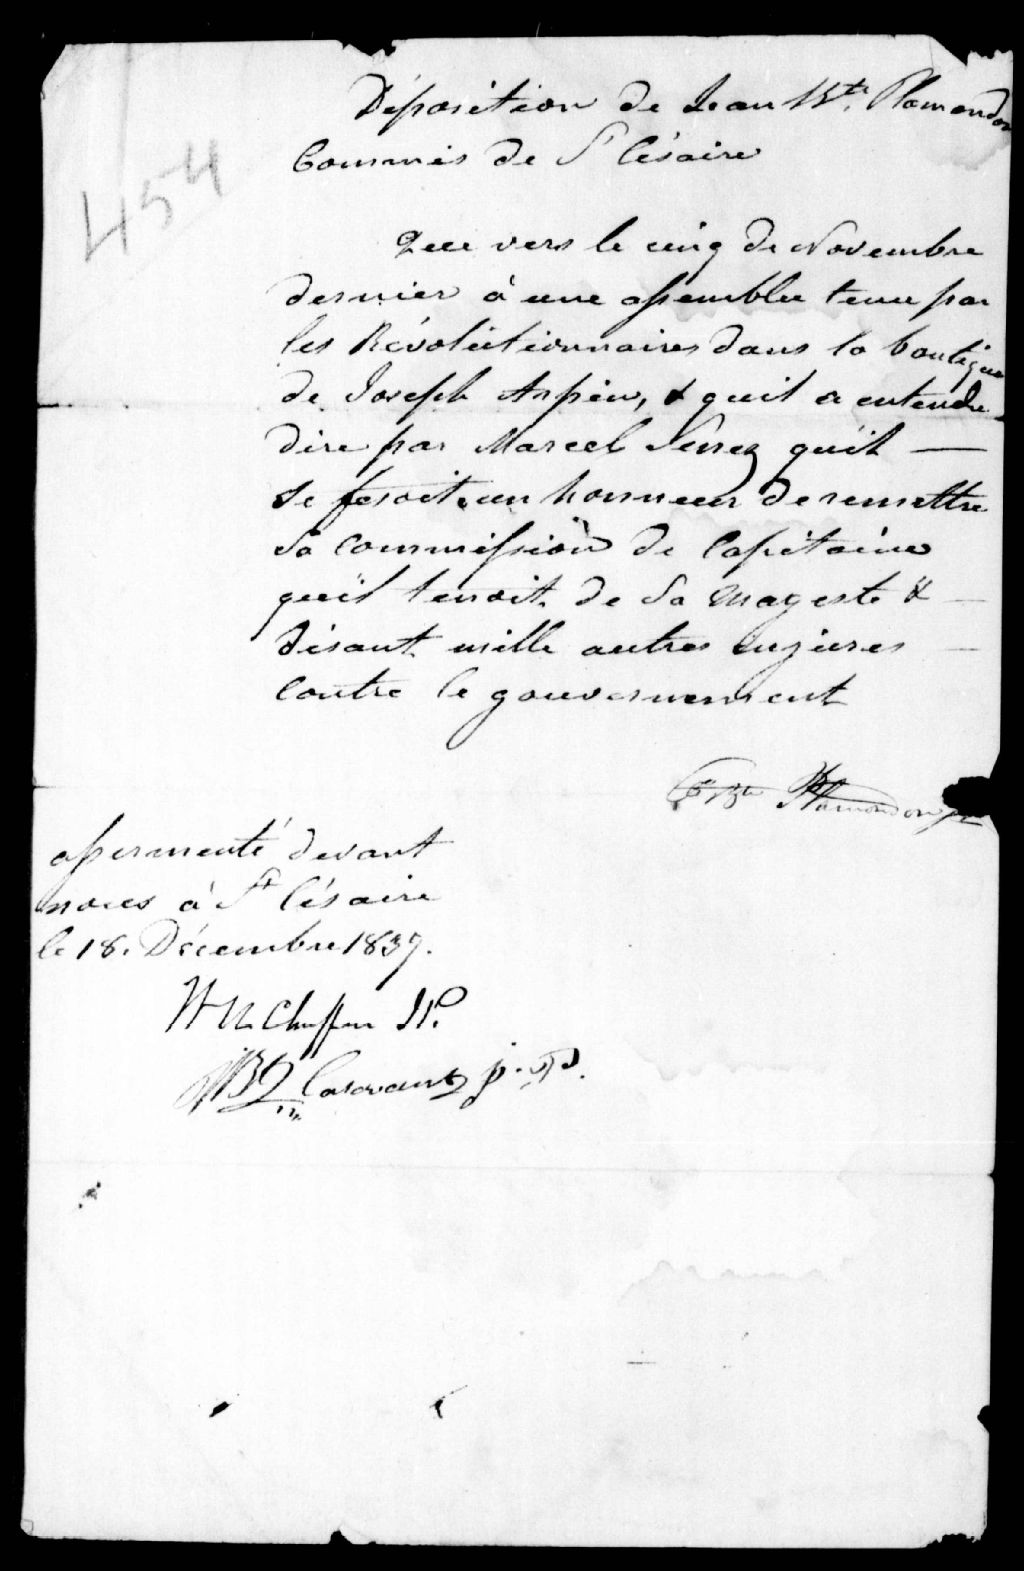 Déposition de Jean Bte. Plamondon
Commis de St Césaire
454
Que vers le cinq de Novembre
dernier à une assemblée tenue par
les Révolutionnaires dans la boutique
de Joseph Arpin, & quil a entendre
dire par Marcel Serrez qu'il —
se fesoit un honneur de remettre
sa commission de Capitaine
qu'il tenoit de Sa Mageste & —
disant mille autres injures —
contre le gouvernement
Bte Plamondon
assermenté devant
nous à St Césaire
le 18. Décembre 1837.
Wm Chaffers JP.
Casavant j.P.